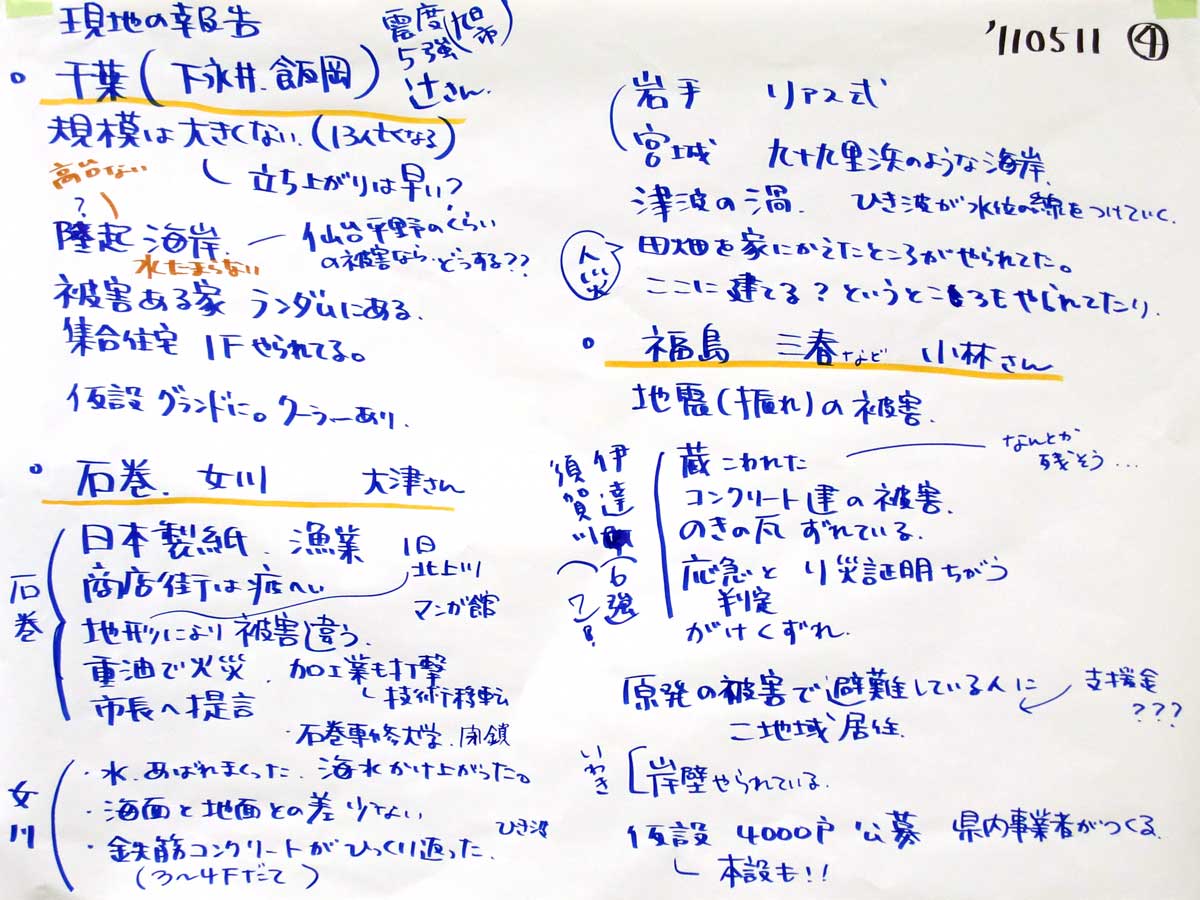 現地の報告
震度
5強(旭市)
'110511 ④
。千葉(下永井.飯岡) 辻さん.
規模は大きくない.(13人亡くなる)
高台ない
?
立ち上がりは早い?
隆起海岸. ― 仙台平野のくらい
の被害なら.どうする??
水たまらない
被害ある家 ランダムにある.
集合住宅 1Fやられてる。
仮設 グランドに。クーラーあり.
。石巻. 女川 大津さん
石巻
日本製紙. 漁業
商店街は疲へい
旧
北上川
マンガ館
地形により被害違う.
重油で火災. 加工業も打撃
技術移転
市長へ提言
・石巻専修大学.閉鎖
女川
・水.あばれまくった.海水かけ上がった。
・海面と地面との差少ない
・鉄筋コンクリートがひっくり返った.
ひき波
(3〜4Fだて)
岩手 リアス式
宮城 九十九里浜のような海岸.
津波の渦. ひき波が水位の線をつけていく.
人災
田畑を家にかえたところがやられてた。
ここに建てる?というところもやられてたり.
。福島 三春など 小林さん
地震(揺れ)の被害.
須賀川
伊達
(6強)
蔵こわれた
なんとか
残そう…
コンクリート建の被害.
のきの瓦 ずれている.
応急と り災証明ちがう
判定
がけくずれ.
原発の被害で避難している人に
支援金
???
二地域居住.
いわき
岸壁やられている.
仮設 4000戸 公募 県内事業者がつくる.
本設も!!